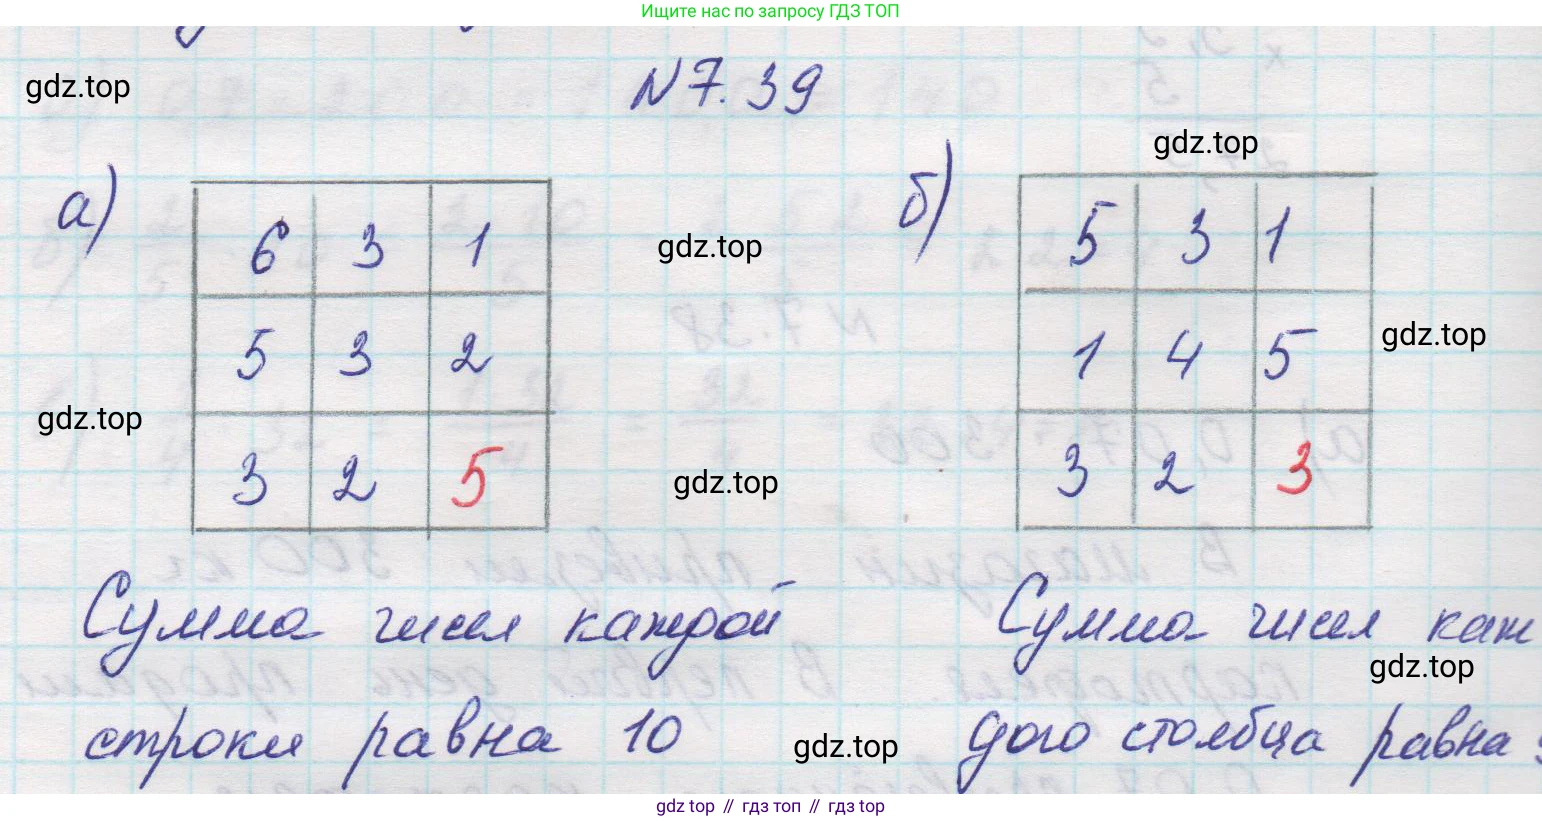 Ищите нас по запросу ГДЗ ТОП
gdz.top
N 7.39
gdz.top
а)
6 3 1
5 3 2
3 2 5
gdz.top
gdz.top
gdz.top
б)
5 3 1
1 4 5
3 2 3
gdz.top
Сумма чисел каждой
строки равна 10
Сумма чисел каж
gdz.top
дого столбца равна
gdz.top
gdz top // гдз топ // gdz top